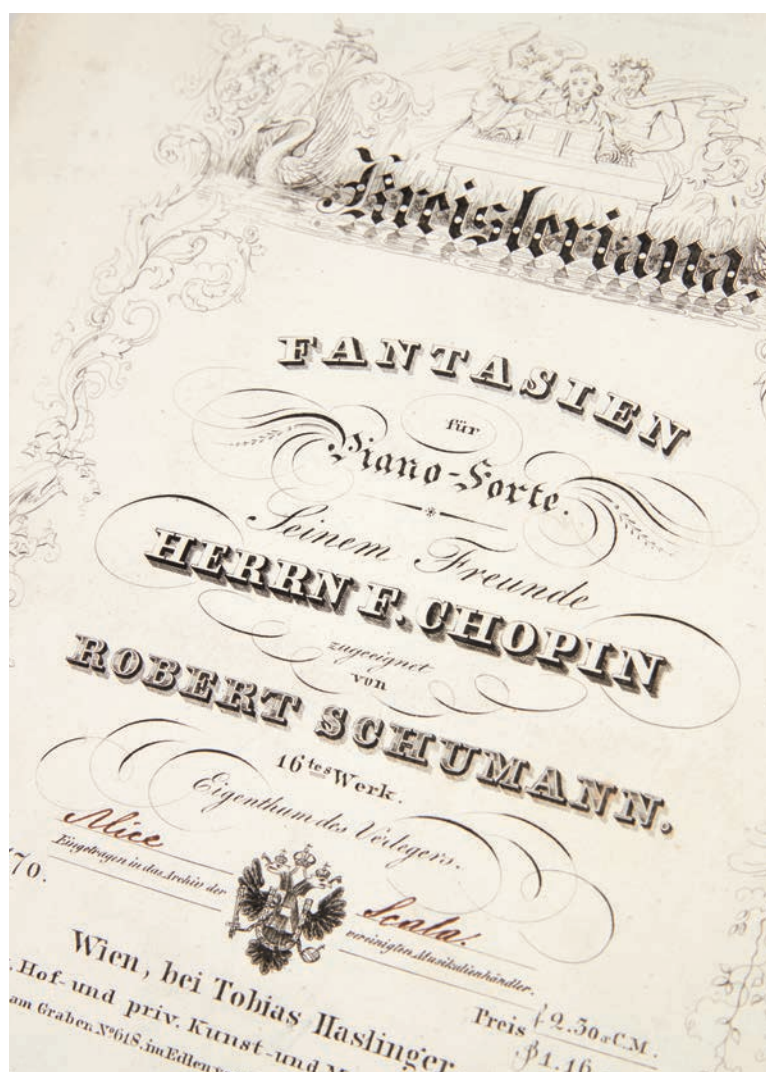 Kreisleriana.
FANTASIEN
für
Piano-Forte.
Seinem Freunde
HERRN F. CHOPIN
zugeeignet
von
ROBERT SCHUMANN.
16tes Werk.
Eigenthum des Verlegers.
Alice Scala.
Eingetragen in das Archiv der vereinigten Musikalienhändler.
70.
Wien, bei Tobias Haslinger
Preis 2.30 x C.M.
1.16
Hof- und priv. Kunst- und
am Graben No 618. im